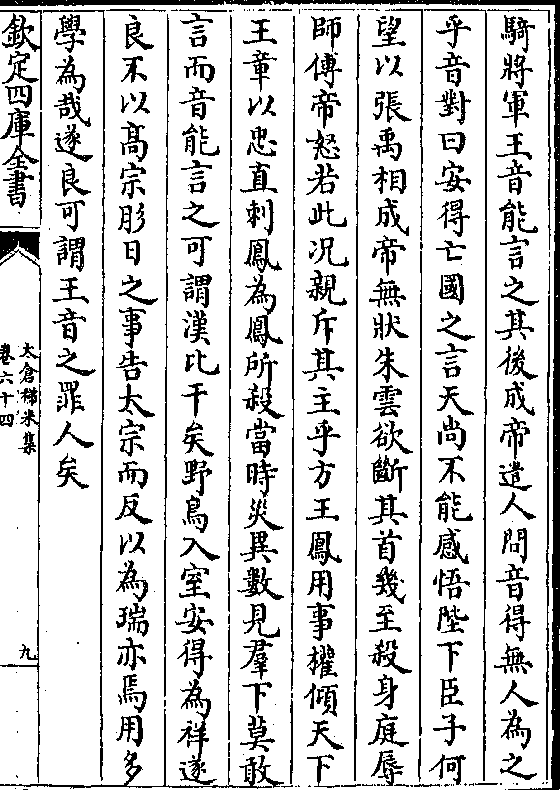 騎將軍王音能言之其後成帝遣人問音得無人為之
乎音對曰安得亡國之言天尚不能感悟陛下臣子何
望以張禹相成帝無狀朱雲欲斷其首幾至殺身庭辱
師傅帝怒若此况親斥其主乎方王鳳用事權傾天下
王章以忠直刺鳳為鳳所殺當時災異數見羣下莫敢
言而音能言之可謂漢比干矣野鳥入室安得為祥遂
良不以髙宗肜日之事告太宗而反以為瑞亦焉用多
學為哉遂良可謂王音之罪人矣
欽定四庫全書
太倉稊米集
卷六十四
九